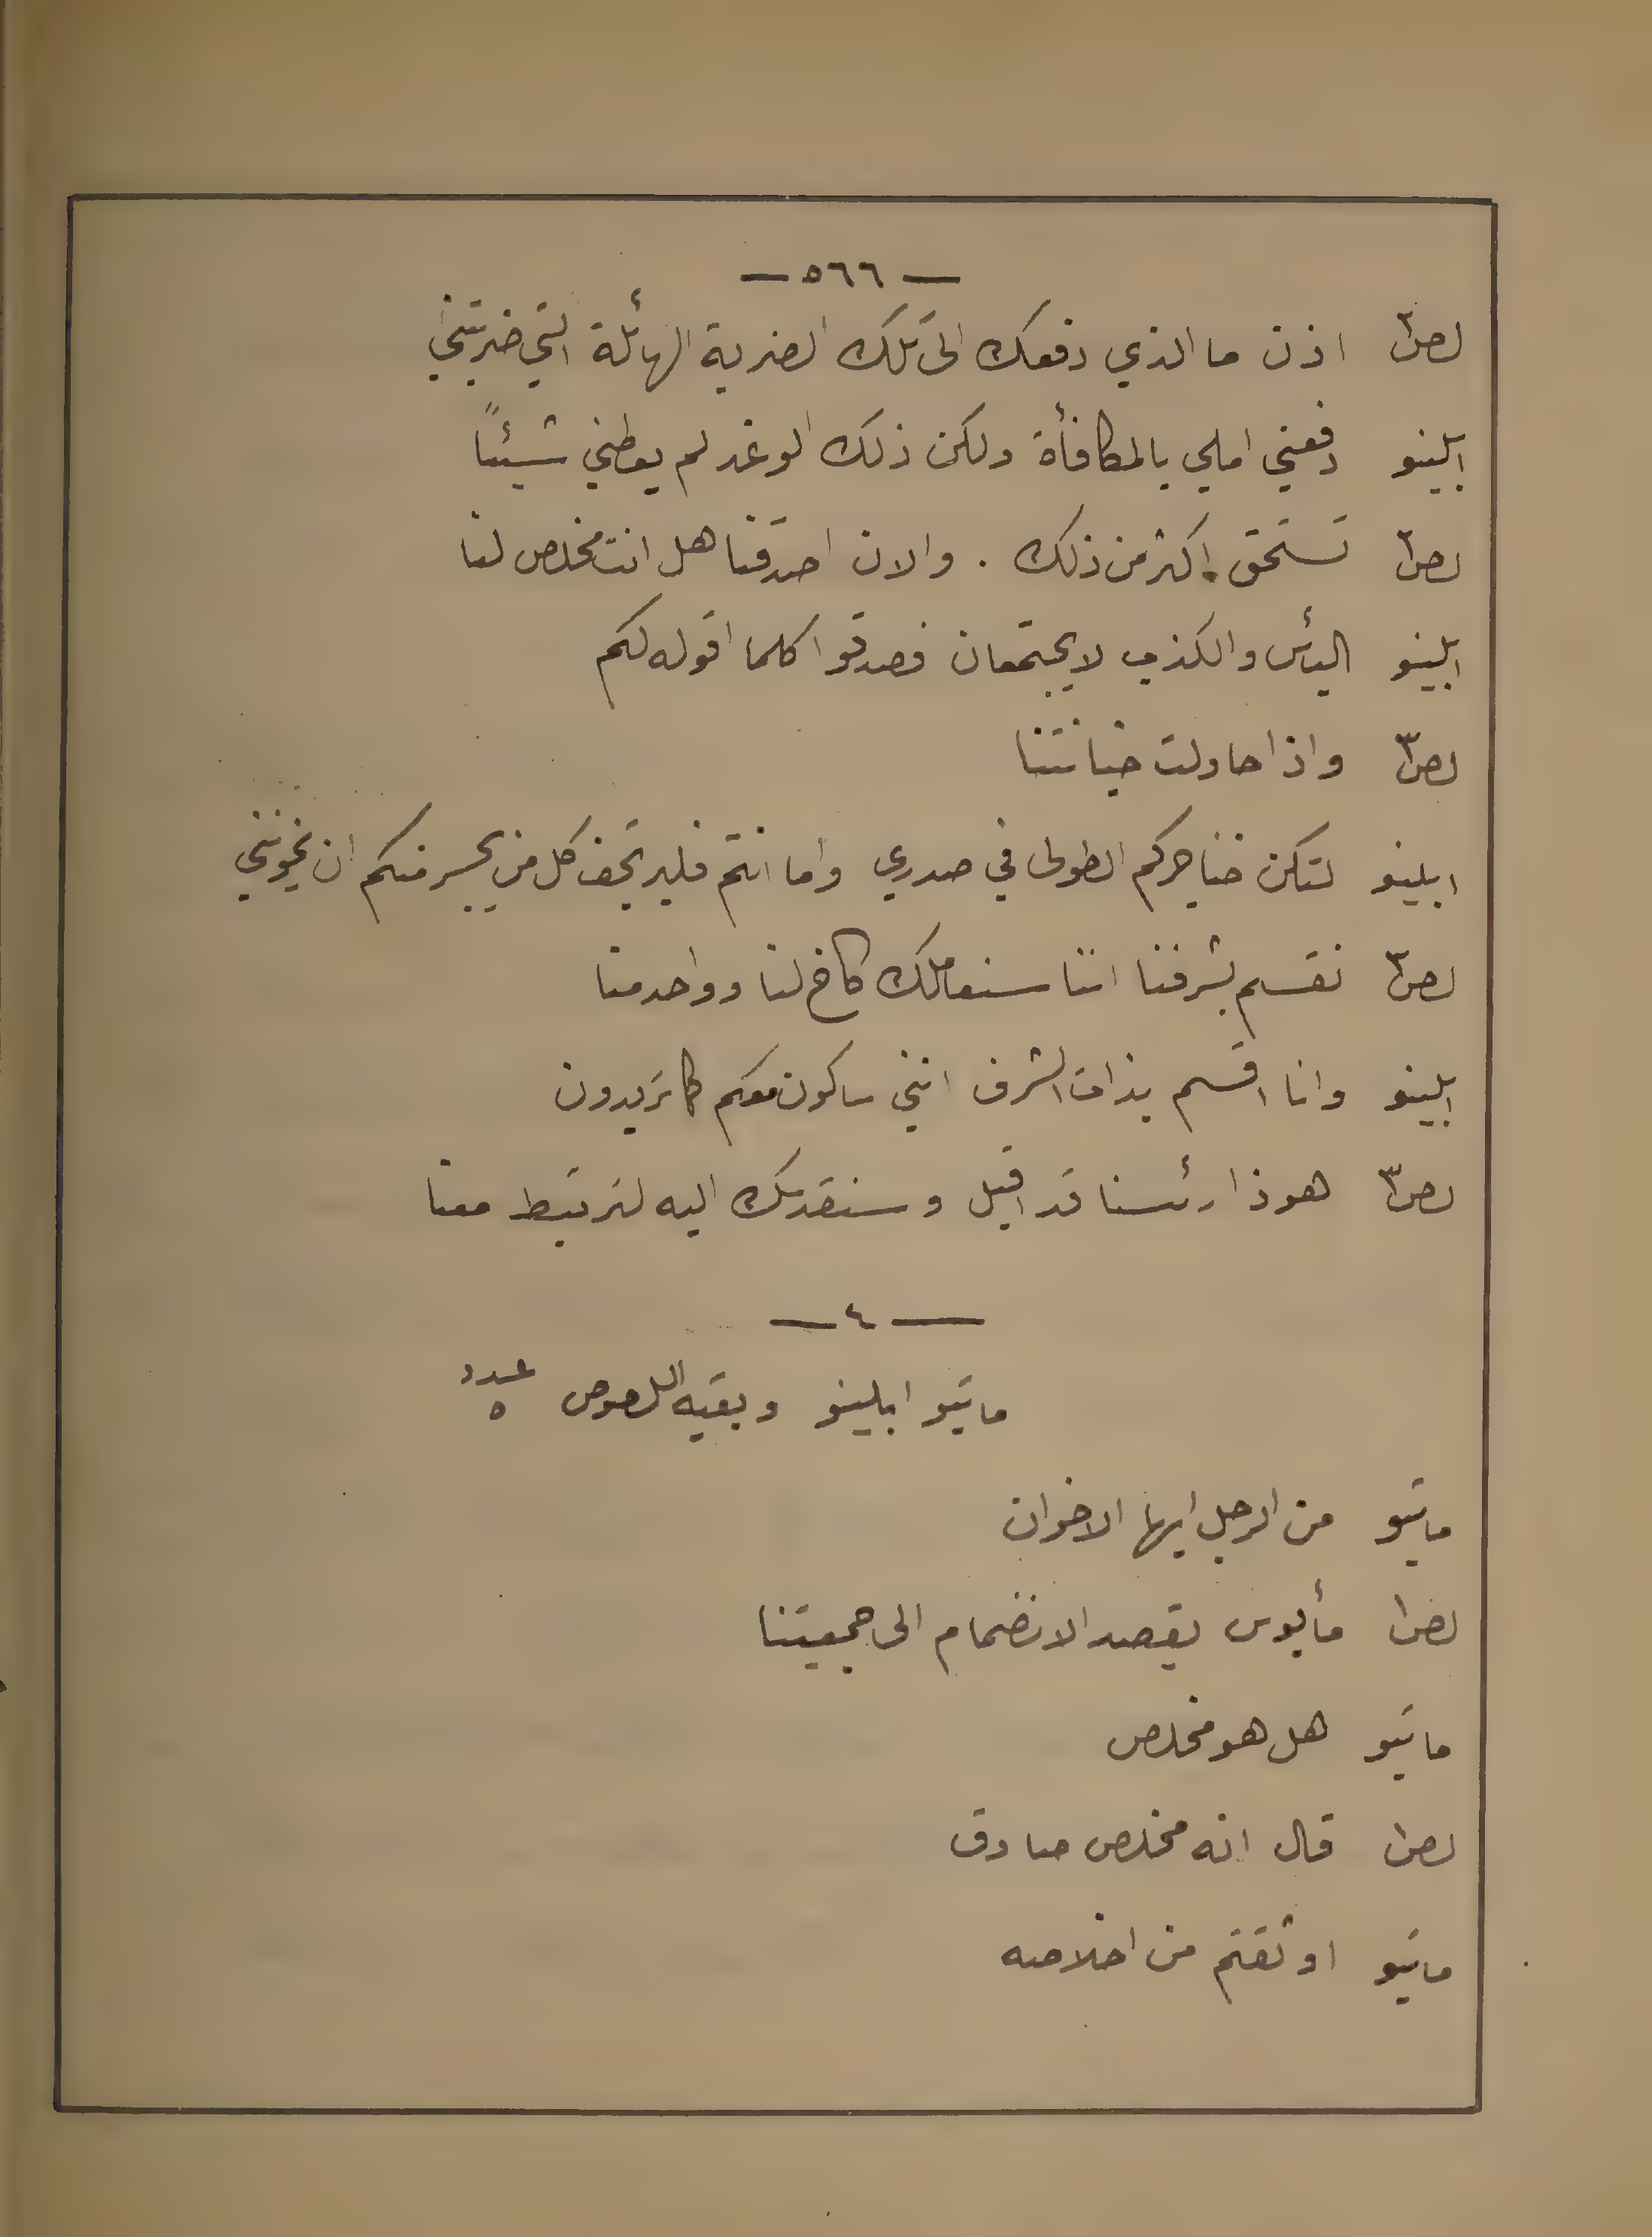 — ٥٦٦ —
لص٢ اذن ما الذي دفعك الى تلك الضربة الهائلة التي ضربتني
ابلينو دفعني املي بالمكافأة ولكن ذلك الوغد لم يعطني شيئاً
لص٢ تستحق اكثر من ذلك . والان اصدقنا هل انت مخلص لنا
ابلينو اليأس والكذب لا يجتمعان فصدقوا كلما اقوله لكم
لص٣ واذا حاولت خيانتنا
ابلينو لتكن خناجركم الطولى في صدري واما انتم فليرتجف كل من يجسر منكم ان يخونني
لص٢ نقسم بشرفنا اننا سنعاملك كاخ لنا وواحد منا
ابلينو وانا اقسم بذات الشرف انني ساكون معكم كما تريدون
لص٣ هوذا رئسنا قد اقبل وسنقدمك اليه لترتبط معنا
— ٤ —
ماتيو ابلينو وبقيه اللصوص عدد ٥
ماتيو من الرجل ايها الاخوان
لص١ مأيوس يقصد الانضمام الى جمعيتنا
ماتيو هل هو مخلص
لص١ قال انه مخلص صادق
ماتيو اوثقتم من اخلاصه